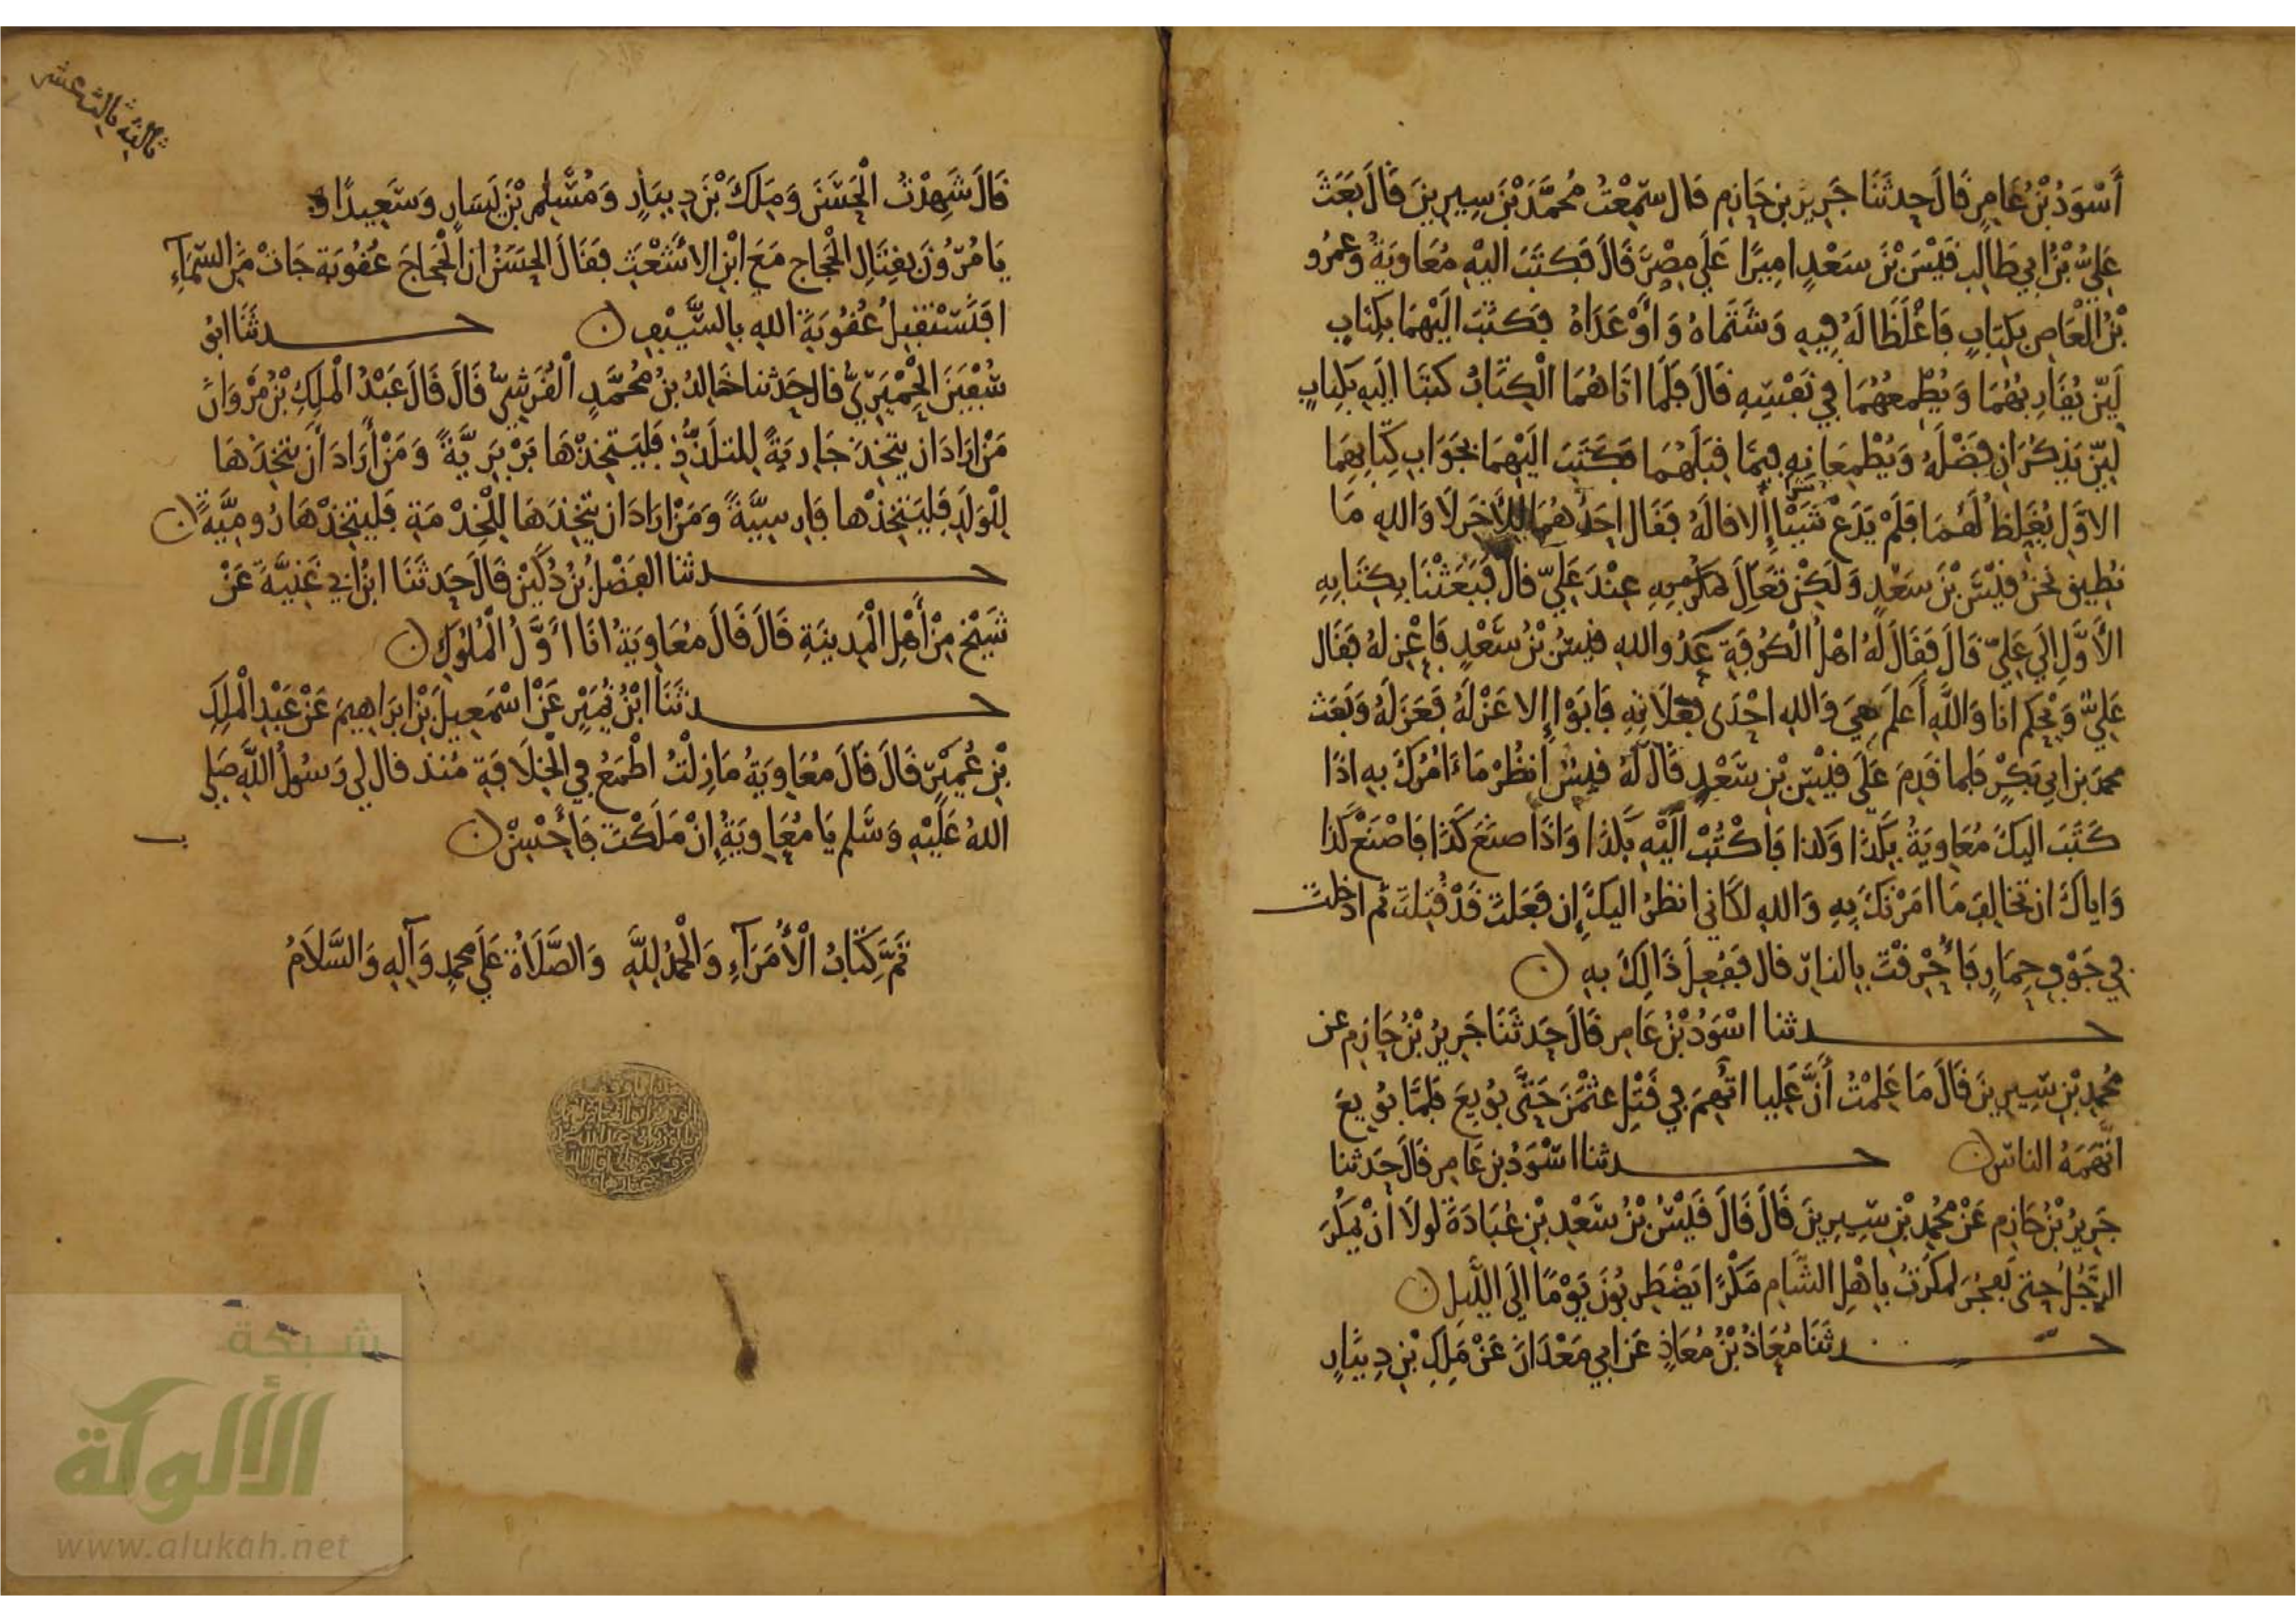 أَسْوَدُ بْنُ عَامِرٍ قَالَ حدثَنَا جَرِيرُ بن حَازِم قال سَمِعْتُ مُحمَّدَ بْنَ سِيرِينَ قَالَ بَعَثَ
عَلِيُّ بْنُ ابي طَالِب قَيْسَ بْنَ سَعْدٍ امِيرًا عَلَي مِصْرَ قَالَ فَكَتَبَ اليْهِ مُعَاوِيَةُ وَعمرُو
بْنُ الْعَاصِ بكِتَابٍ فَاغْلَظَا لَهُ فِيهِ وَشَتَمَاهُ وَأَوْعَدَاهُ فكَتَبَ الَيْهِمَا بكِتَابٍ
لَيِّن يُقَارِبُهُمَا وَيُطْمِعُهُمَا فِي نَفْسِهِ قَالَ فَلَمَّا اتَاهُمَا الْكِتَابُ كتبَا الَيهِ بكِتابٍ
لَيِّن يَذكرَانِ فَضْلَهُ وَيُطْمِعَانِهِ فِيمَا قِبَلَهُمَا فكَتَبَ الَيْهِمَا بجَوَابِ كِتَابِهِمَا
الاوَّلِ يُغَلِظُ لَهُمَا فَلَمْ يَدَعْ شَيْئا إِلا قالَهُ فَقَال احَدُهُمَا لِلآخَرِ لَا وَاللهِ مَا
نطِيق نحنُ قَيْسَ بْنَ سَعْدٍ وَلَكِنْ تَعَالَ نمكرُ بِهِ عِنْدَ عَلِيّ قال فَبَعَثْنَا بِكِتَابِهِ
الأَوَّلِ إلَي عَلِيّ قَالَ فَقَالَ لَهُ اهْلُ الْكُوفَةِ عَدُو اللهِ قيسُ بْنُ سَعْدٍ فَاعْزِلهُ فقَال
عَلِيّ وَيْحَكم انَا وَاللَّهِ أَعلَم هِيَ وَاللهِ احْدَى فعلَاتِهِ فَابَوْا إِلا عَزْلَهُ فَعَزَلَهُ وَبَعَث
محمدَ بن ابي بَكرٍ فلما قَدِمَ عَلَى قَيْسِ بْنِ سَعْدٍ قَالَ لَهُ قيسٌ انظُرْ مَا ءَامُرُكَ بِهِ اذَا
كَتَبَ اليكَ مُعَاوِيَةُ بِكَذا وَكذا فاكْتُبْ الَيْهِ بِكذا وَاذَا صنَعَ كَذَا فَاصْنَعْ كَذا
وَاياكَ ان تخَالِفَ مَا امَرْتكَ بِهِ وَاللهِ لكَاني انظرُ اليكَ إِن فعَلتَ قَدْ قُتِلتَ ثم ادخلتَ
في جَوْفِ حِمَارٍ فَأُحْرِقْتَ بِالنارِ قال فَفُعِلَ ذَالِكَ بِهِ ن
حـدثنا اسْوَدُ بْنُ عَامِر قَالَ حَدثَنَا جَرِيرُ بْنُ حَازِم عن
مُحمدِ بْنِ سِيرِينَ قَالَ مَا عَلِمْتُ أَنَّ عَلِيا اتُّهِمَ في قَتْلِ عثْمَنَ حَتَّى بُويِعَ فَلَمَّا بُويِعَ
اتَّهَمَهُ الناسُ ن حـدثنا اسْوَدُ بن عَامِر قَالَ حَدثنا
جَرِيرُ بْنُ حَازِم عَنْ مُحمدِ بْنِ سِيرِينَ قَالَ قَالَ قَيْسُ بْنُ سَعْدِ بْنِ عُبَادَةَ لولَا انْ يَمْكُرَ
الرَّجُلُ حتى يَفجُرَ لمكَرْتُ بِاهْلِ الشَّامِ مَكْرًا يَضْطَرِبُونَ يَوْمًا الَي اللَّيلِ ن
حـدثَنَا مُعَاذُ بْنُ مُعَاذٍ عَن ابي مَعْدَانَ عَنْ مَلِكِ بْنِ دِينَارٍ
ثالثه ثالث عشر
قَالَ شَهِدْتُ الْحَسَنَ وَمَلِكَ بْنَ دِينَارٍ وَمُسْلِمَ بْنَ يَسَارٍ وَسَعِيدًا
يَامُرُونَ بقِتَالِ الْحَجاج مَعَ ابْنِ الاشْعَثِ فقَالَ الحَسَنُ ان الْحَجاجَ عُقُوبَة جَاتْ مَن السَّمَآءِ
افَنَسْتَقبِلُ عُقُوبَةَ اللهِ بِالسَّيْفِ ن حـدثَنَا ابُو
سُفْيَنَ الحِمْيَرِيُّ قال حَدثنا خَالِدُ بنُ مُحمَّدٍ القُرَشِيّ قَالَ قَالَ عَبْدُ الْمَلِكِ بْنُ مَرْوَانَ
مَنْ ارَادَ ان يتَّخِذَ جَارِيَةً لِلتلَذُّذِ فَليَتخِذْهَا بَرْبَرِيَّةً وَمَنْ أَرَادَ أَن يتخِذَهَا
لِلْوَلَدِ فَليَتخِذْها فَارِسِيَّةً وَمَنْ ارَادَ ان يتخِذَهَا لِلْخِدْمَةِ فَليَتخِذْهَا رُومِيَّةً ن
حـدثنا الفَضْلُ بْنُ دُكَيْن قَالَ حَدثَنَا ابْنُ ابي غَنِيَّةَ عَنْ
شَيْخ مِنْ أَهْلِ الْمَدِينَةِ قَالَ قَالَ مُعَاوِيَةُ انَا اوَّلُ الْمُلُوكِ ن
حـدثَنَا ابْنُ نُمَيْرٍ عَنْ اسْمَعِيلَ بْنِ ابرَاهِيمَ عَنْ عَبْدِ الْمَلِكِ
بْنِ عُمَيْرٍ قَالَ قَالَ مُعَاوِيَةُ مَازِلْتُ اطْمَعُ فِي الْخِلَافَةِ مُنذ قال لي رَسُولُ اللَّهِ صَلي
اللهُ عَلَيْهِ وَسَّلم يَا مُعَاوِيَةُ إِنْ مَلَكْتَ فَأَحْسِنْ ن
تَمَّ كِتَابُ الْأُمَرَآءِ وَالْحَمْدُ للَّهِ وَالصَّلَاةُ عَلَي محمدٍ وَآلِهِ وَالسَّلَامُ
شبكة
الألوكة
www.alukah.net